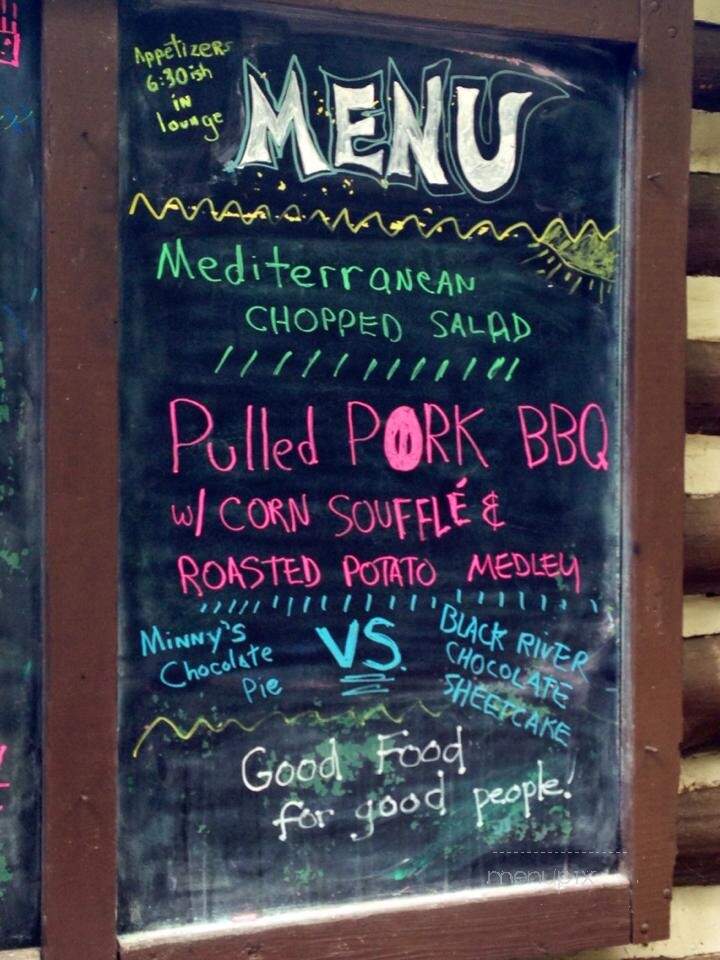 Appetizers
6:30ish
in
lounge
MENU
Mediterranean
CHOPPED SALAD
Pulled PORK BBQ
w/ CORN SOUFFLÉ &
ROASTED POTATO MEDLEY
Minny's
Chocolate
Pie
VS.
BLACK RIVER
CHOCOLATE
SHEETCAKE
Good Food
for good people!
menupix